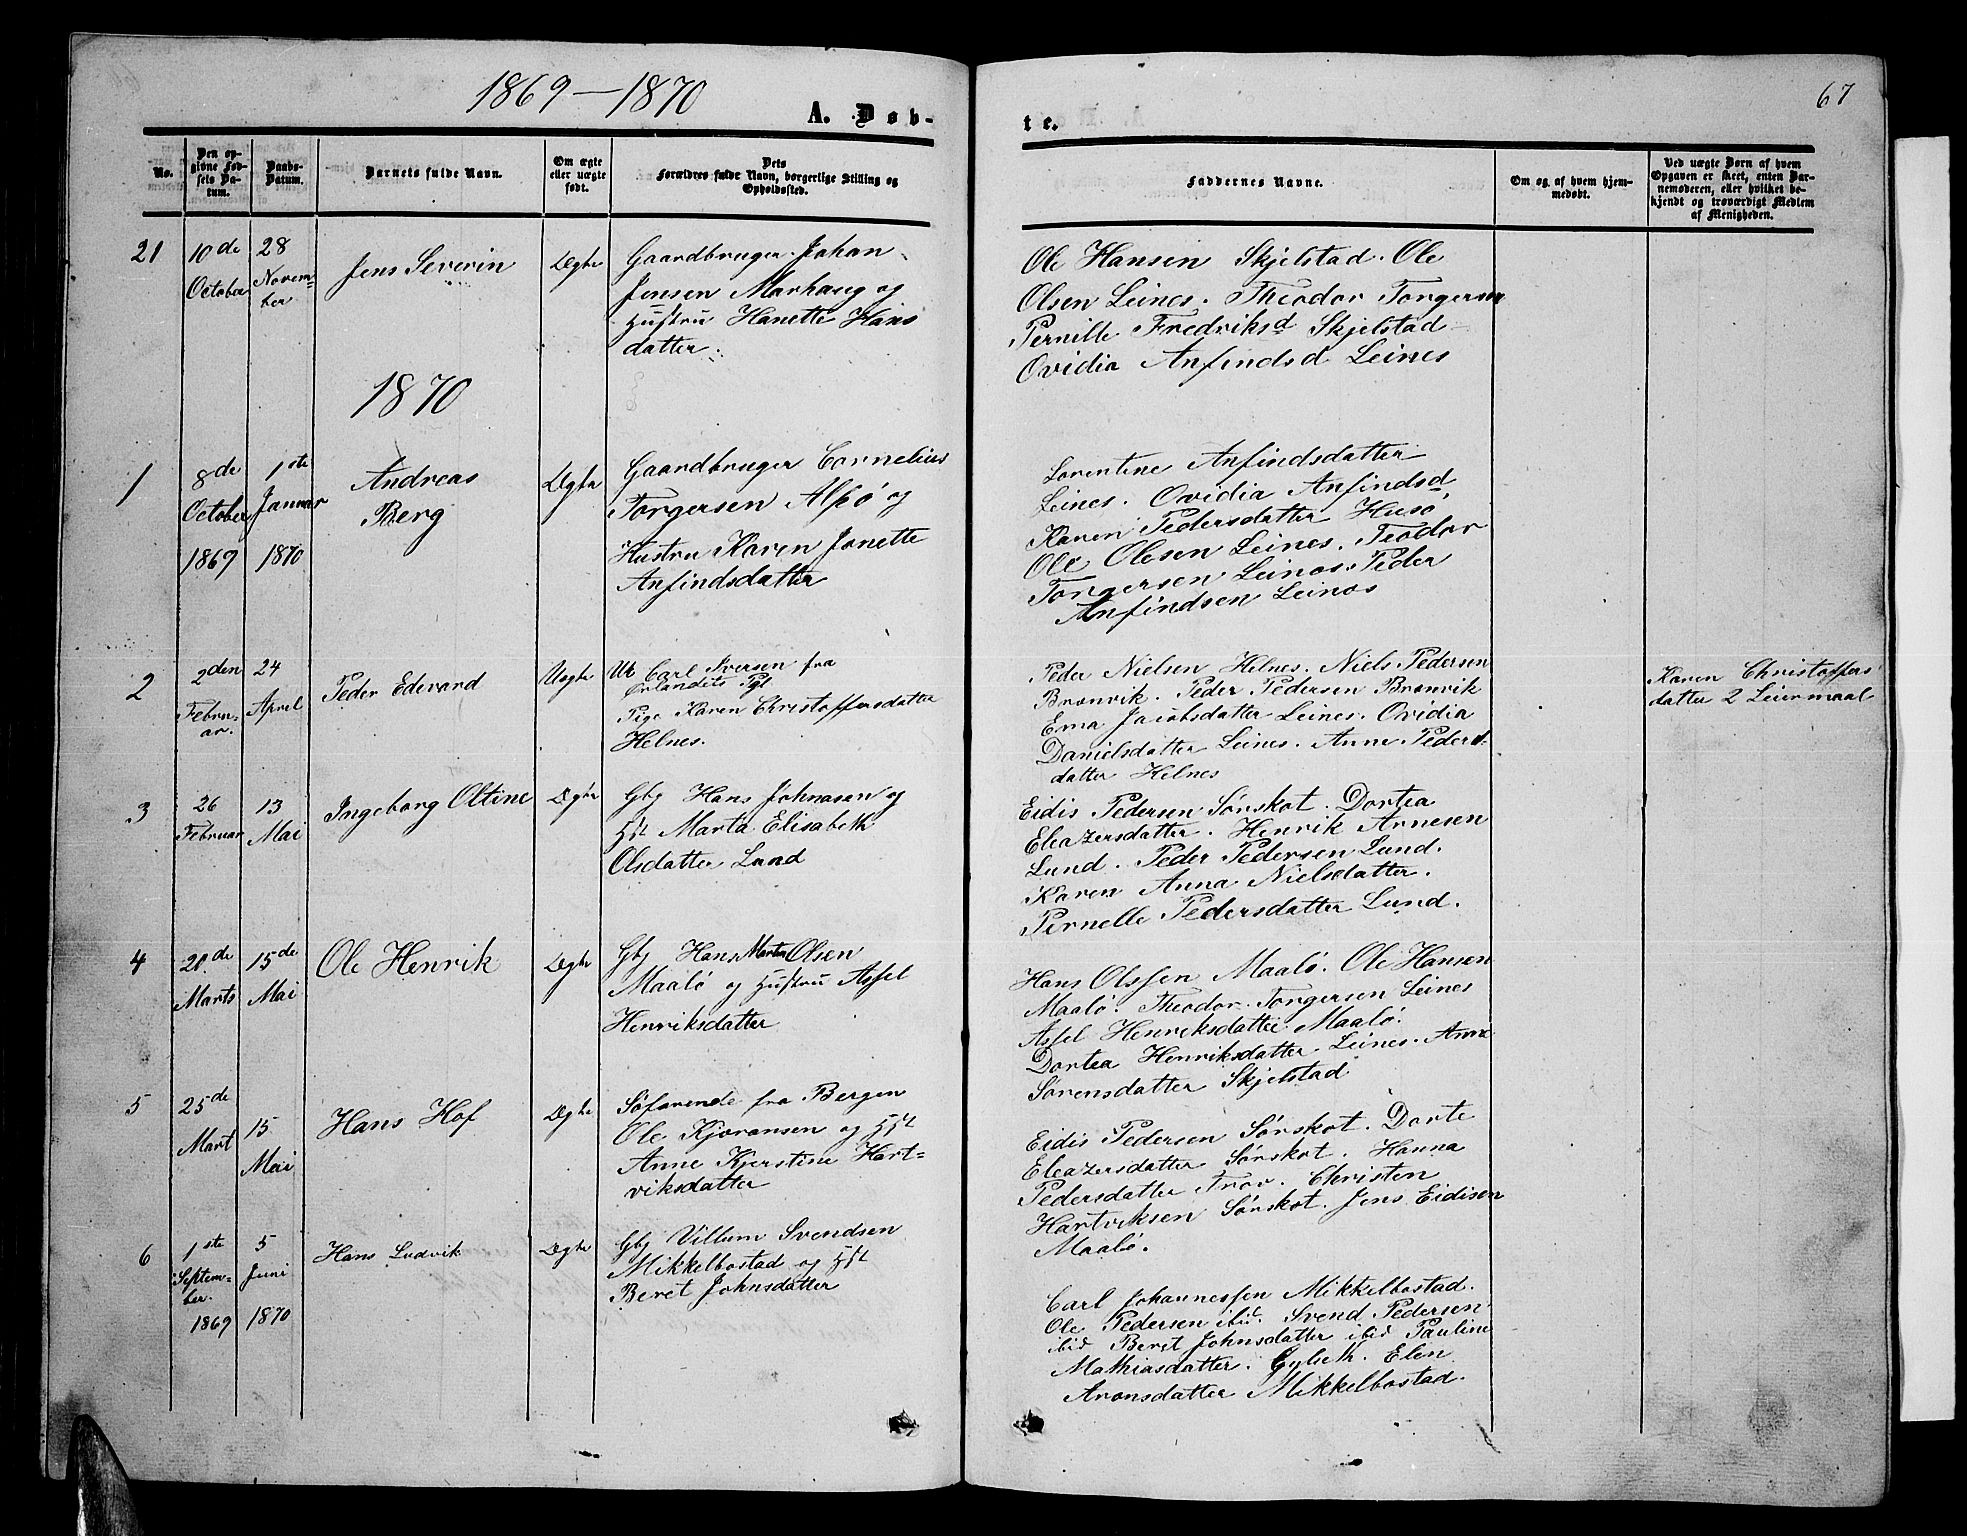 1869–1870
67
A. Døb-
te.
No.
Den op-
givne Fød-
sels Da-
tum.
Daabs-
Datum.
Barnets fulde Navn.
Om ægte
eller uægte
født.
Dets
Forældres fulde Navn, borgerlige Stilling og
Opholdssted.
Faddernes Navne.
Om og af hvem hjem-
medøbt.
Ved uægte Børn af hvem
Opgaven er skeet, enten Bar-
nemoderen, eller hvilket be-
kjendt og troværdigt Medlem
af Menigheden.
21
10de
October
28
Novem-
ber
Jens Severin
Ægte
Gaardbruger Johan
Jensen Marhaug og
Hustru Hanette Hans
datter.
Ole Hansen Skjelstad. Ole
Olsen Leines. Theodor Torgersen
Pernille Fredriksd Skjelstad
Ovidia Anfindsd Leines
1870
1
8de
October
1869
1ste
Januar
1870
Andreas
Berg
Ægte
Gaardbruger Cornelius
Torgersen Alsø og
Hustru Karen Jonette
Anfindsdatter
Lorentine Anfindsdatter
Leines. Ovidia Anfindsd.
Karen Pedersdatter Husø
Ole Olesen Leines. Teodor
Torgersen Leines. Peder
Anfindsen Leines
2
2den
Febru-
ar.
24
April
Peder Edevard
Uægte
Uk Carl Iversen fra
Ørlandets Pgl
Pige Karen Christoffersdatter
Helnes.
Peder Nielsen Helnes. Niels Pedersen
Brønvik. Peder Pedersen Brønvik
Ema Jacobsdatter Leines. Ovidia
Danielsdatter Leines. Anne Peders-
datter Helnes
Karen Christoffers
datter 2 Leiermaal
3
26
Februar
13
Mai
Ingeborg Oltine
Ægte
Gbg Hans Johnasen og
Hst Marta Elisabeth
Olsdatter Lund
Eidis Pedersen Sørskot. Dortea
Eleazersdatter. Henrik Arnesen
Lund. Peder Pedersen Lund.
Karen Anna Nielsdatter.
Pernelle Pedersdatter Lund.
4
20de
Marts
15de
Mai
Ole Henrik
Ægte
Gbg Hans Martin Olsen
Maalø og Hustru Assel
Henriksdatter
Hans Olssen Maalø. Ole Hansen
Maalø. Theodor Torgersen Leines
Assel Henreksdatter Maalø.
Dortea Henriksdatter Leines. Anne
Sørensdatter Skjelstad
5
25de
Mart
15
Mai
Hans Hof
Ægte
Søfarende fra Bergen
Ole Kjøransen og Hst
Anne Kjerstine Hart-
viksdatter
Eidis Pedersen Sørskot. Dorte
Eleazersdatter Sørskot. Hanna
Pedersdatter. Christen
Hartviksen Sørskot. Jens Eidisen
Maalø.
6
1ste
Septem-
ber.
1869
5
Juni
1870
Hans Ludvik
Ægte
Gbg Villum Svendsen
Mikkelbostad og Hst
Beret Johnsdatter
Carl Johannessen Mikkelbostad.
Ole Pedersen ibid. Svend Pedersen
ibid Beret Johnsdatter ibid Pauline
Mathiasdatter. Gylseth. Elen
Aronsdatter Mikkelbostad.